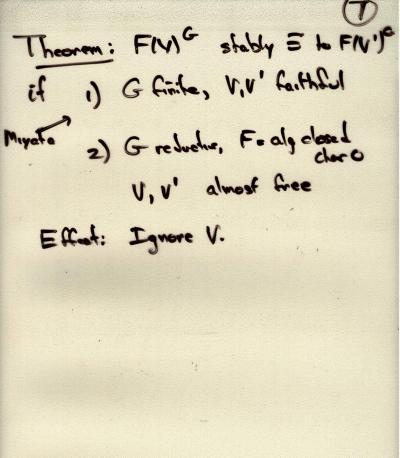 7
Theorem: F(V)^G stably ≅ to F(V')^G
if 1) G finite, V, V' faithful
Miyata
2) G reductive, F = alg closed
char 0
V, V' almost free
Effect: Ignore V.